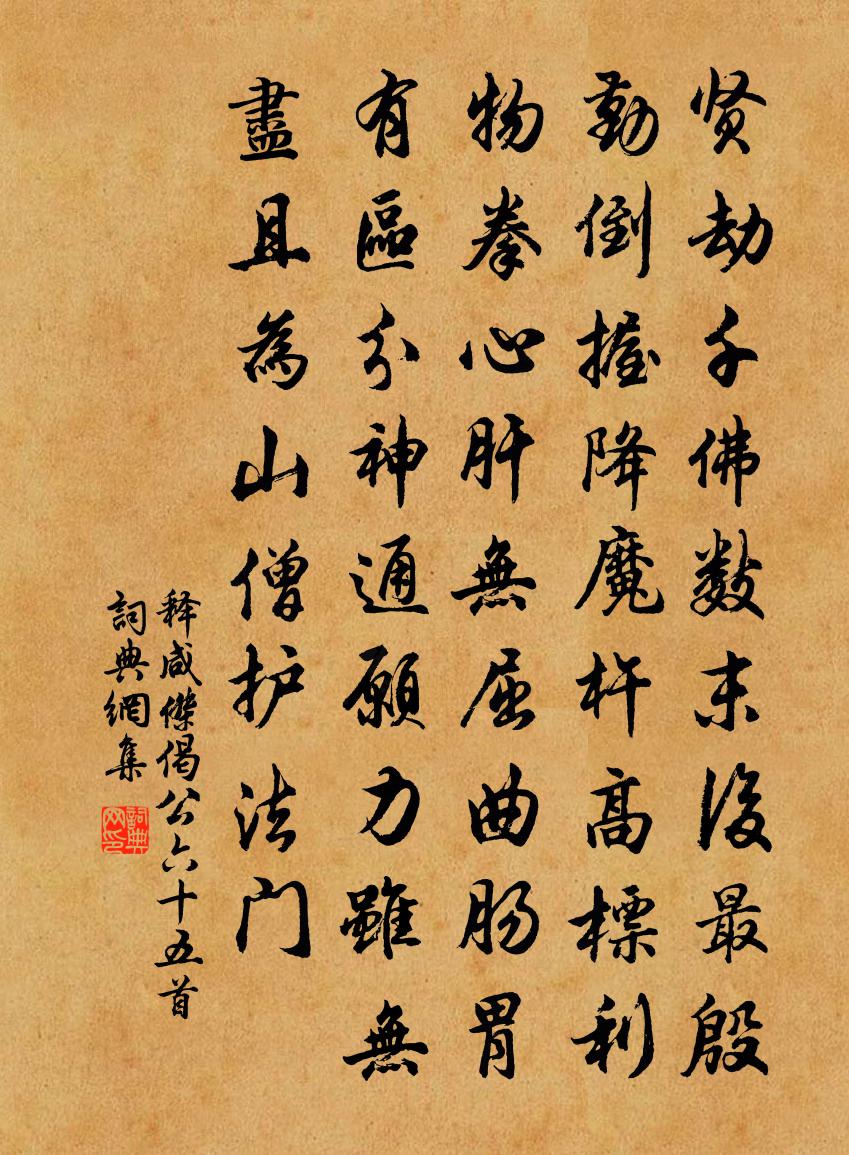 贤劫千佛数末後最殷
勤倒握降魔杵高標利
物拳心肝無屈曲肠胃
有區分神通願力雖無
盡且為山僧护法门
释咸傑偈公六十五首
詞典網集
詞典网印